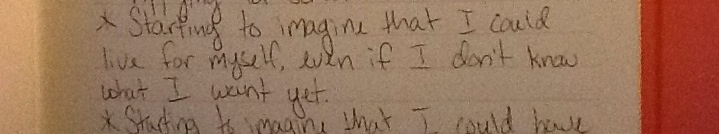 * Starting to imagine that I could
live for myself, even if I don't know
what I want yet.
* Starting to imagine that I could have